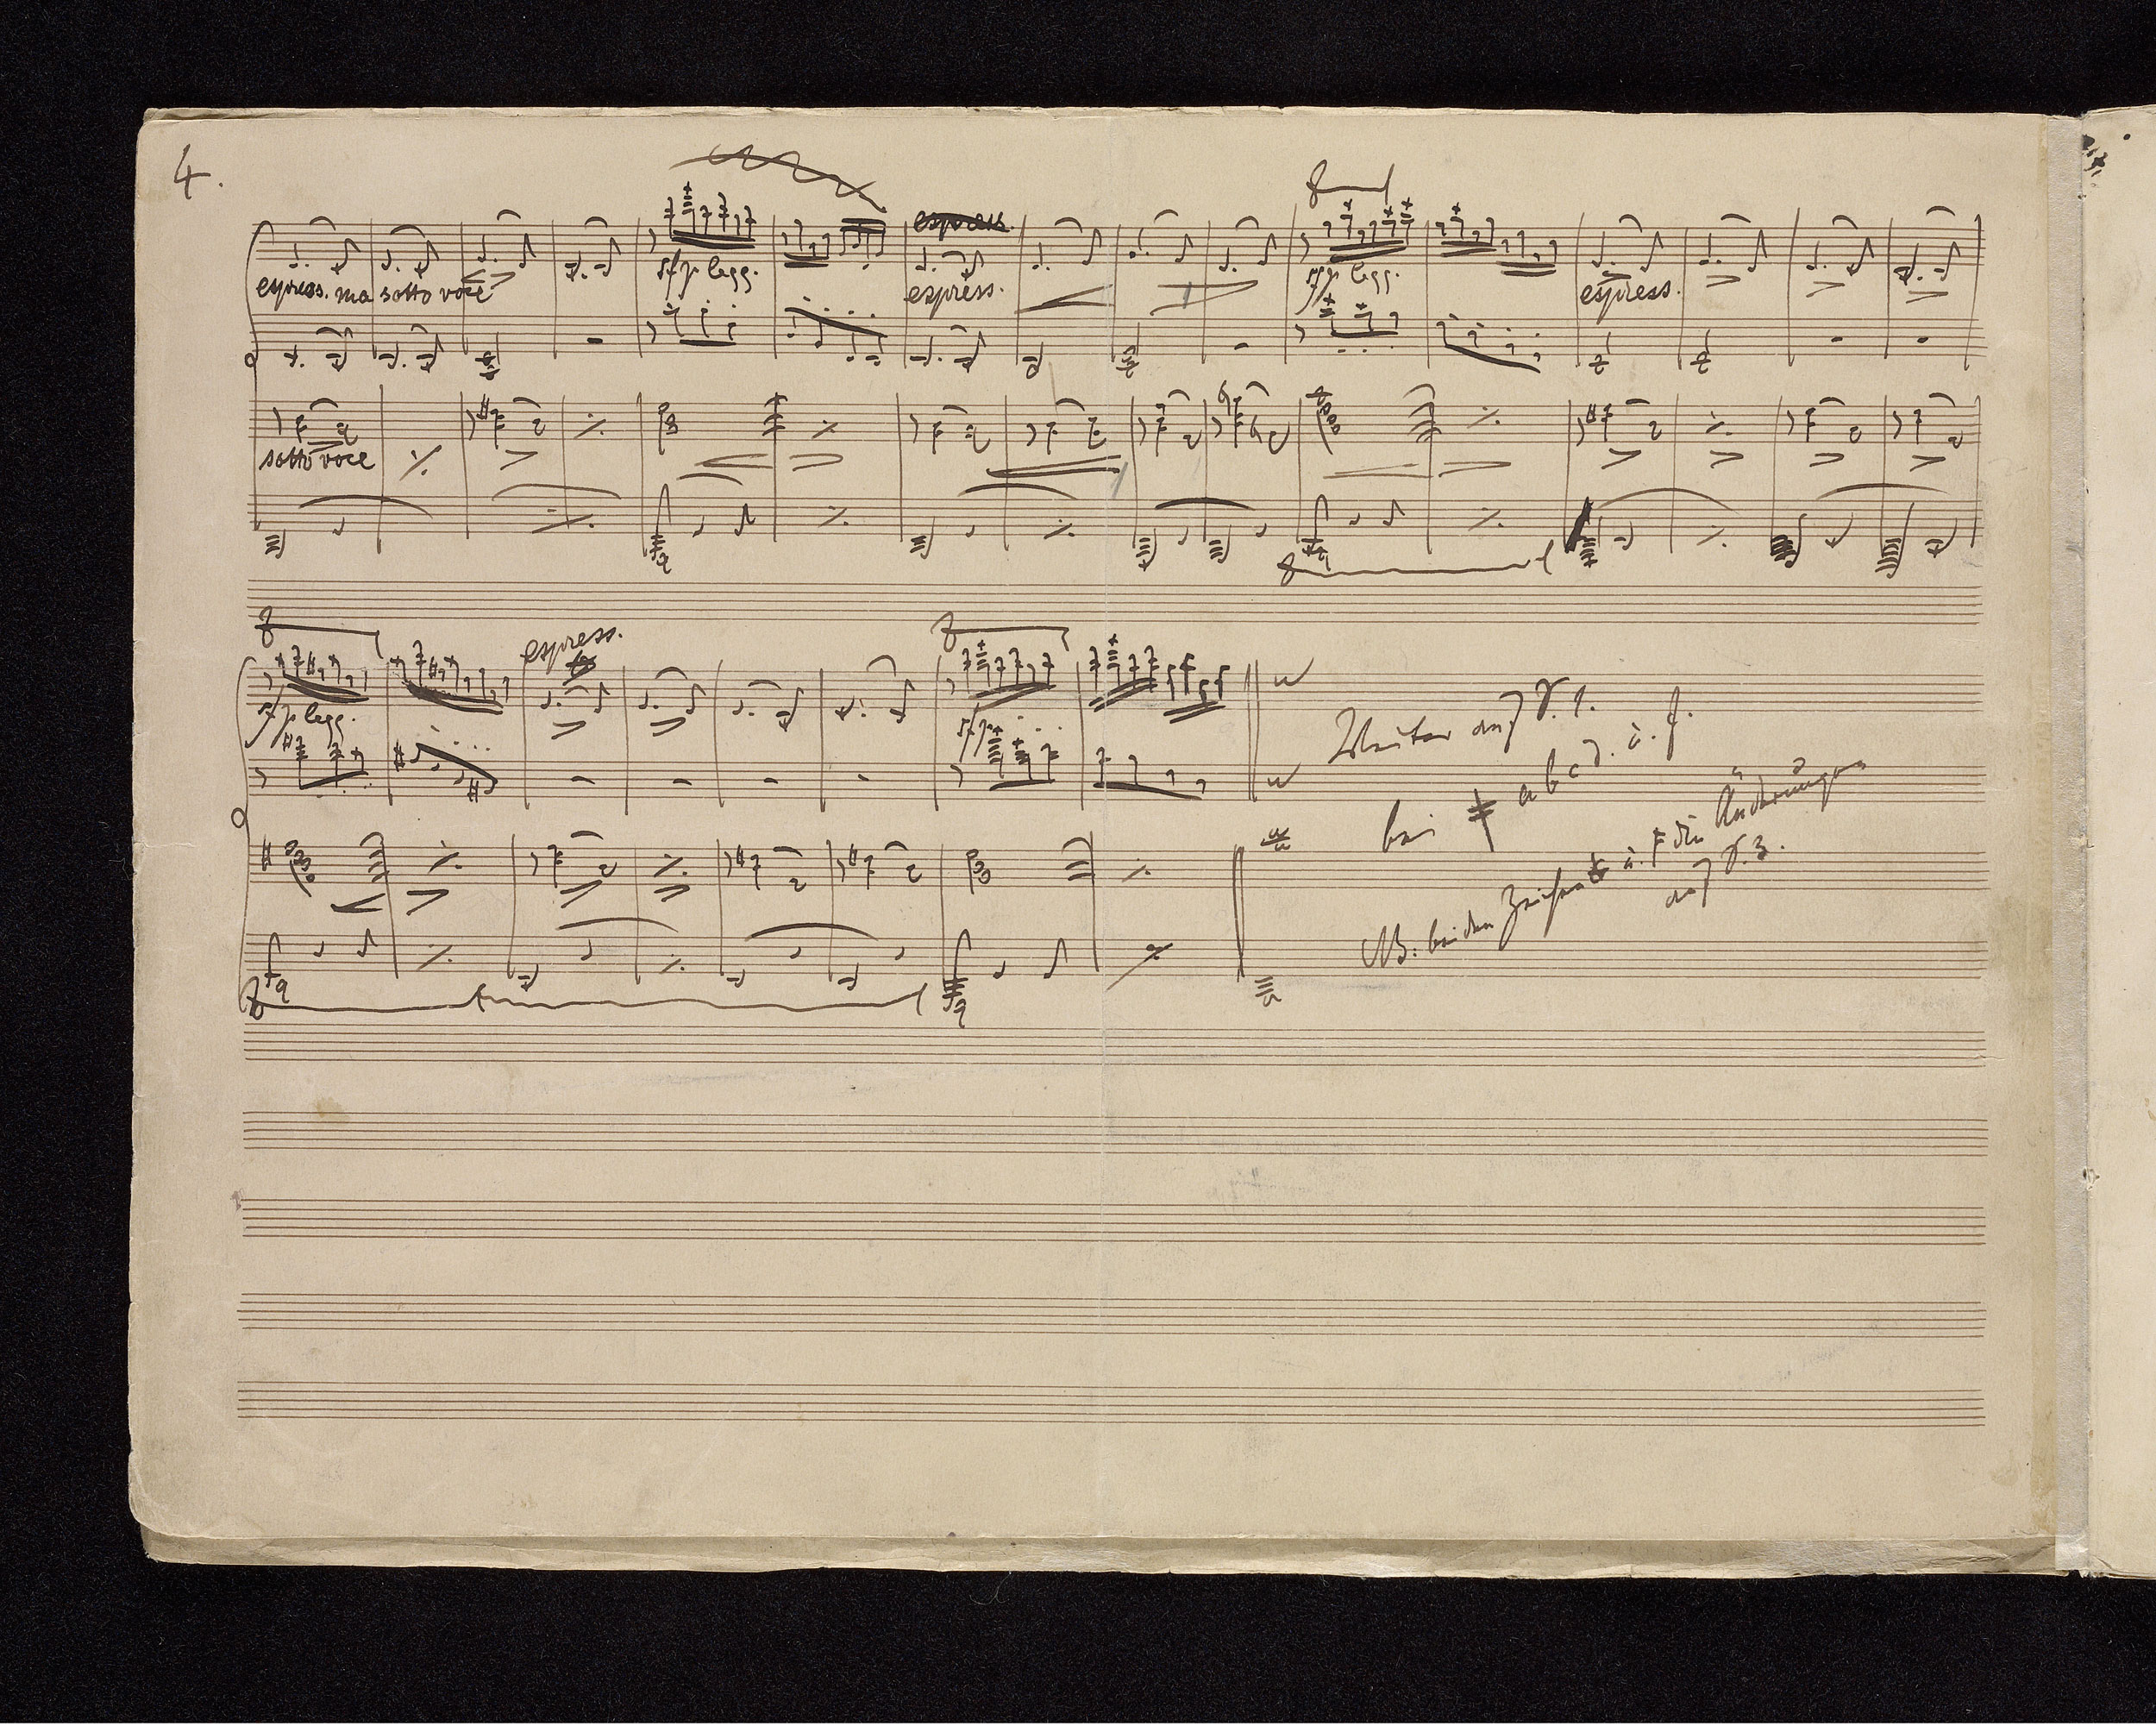 4.
8
espress.
sfp legg. sfp legg.
espress. ma sotto voce espress. espress.
sotto voce
8
8 espress. 8
sfp legg. sfp
Weiter auf S. 1.
bei a b c d. u. f.
NB: bei den Zeichen u. F die Änderungen
auf S. 3.
8